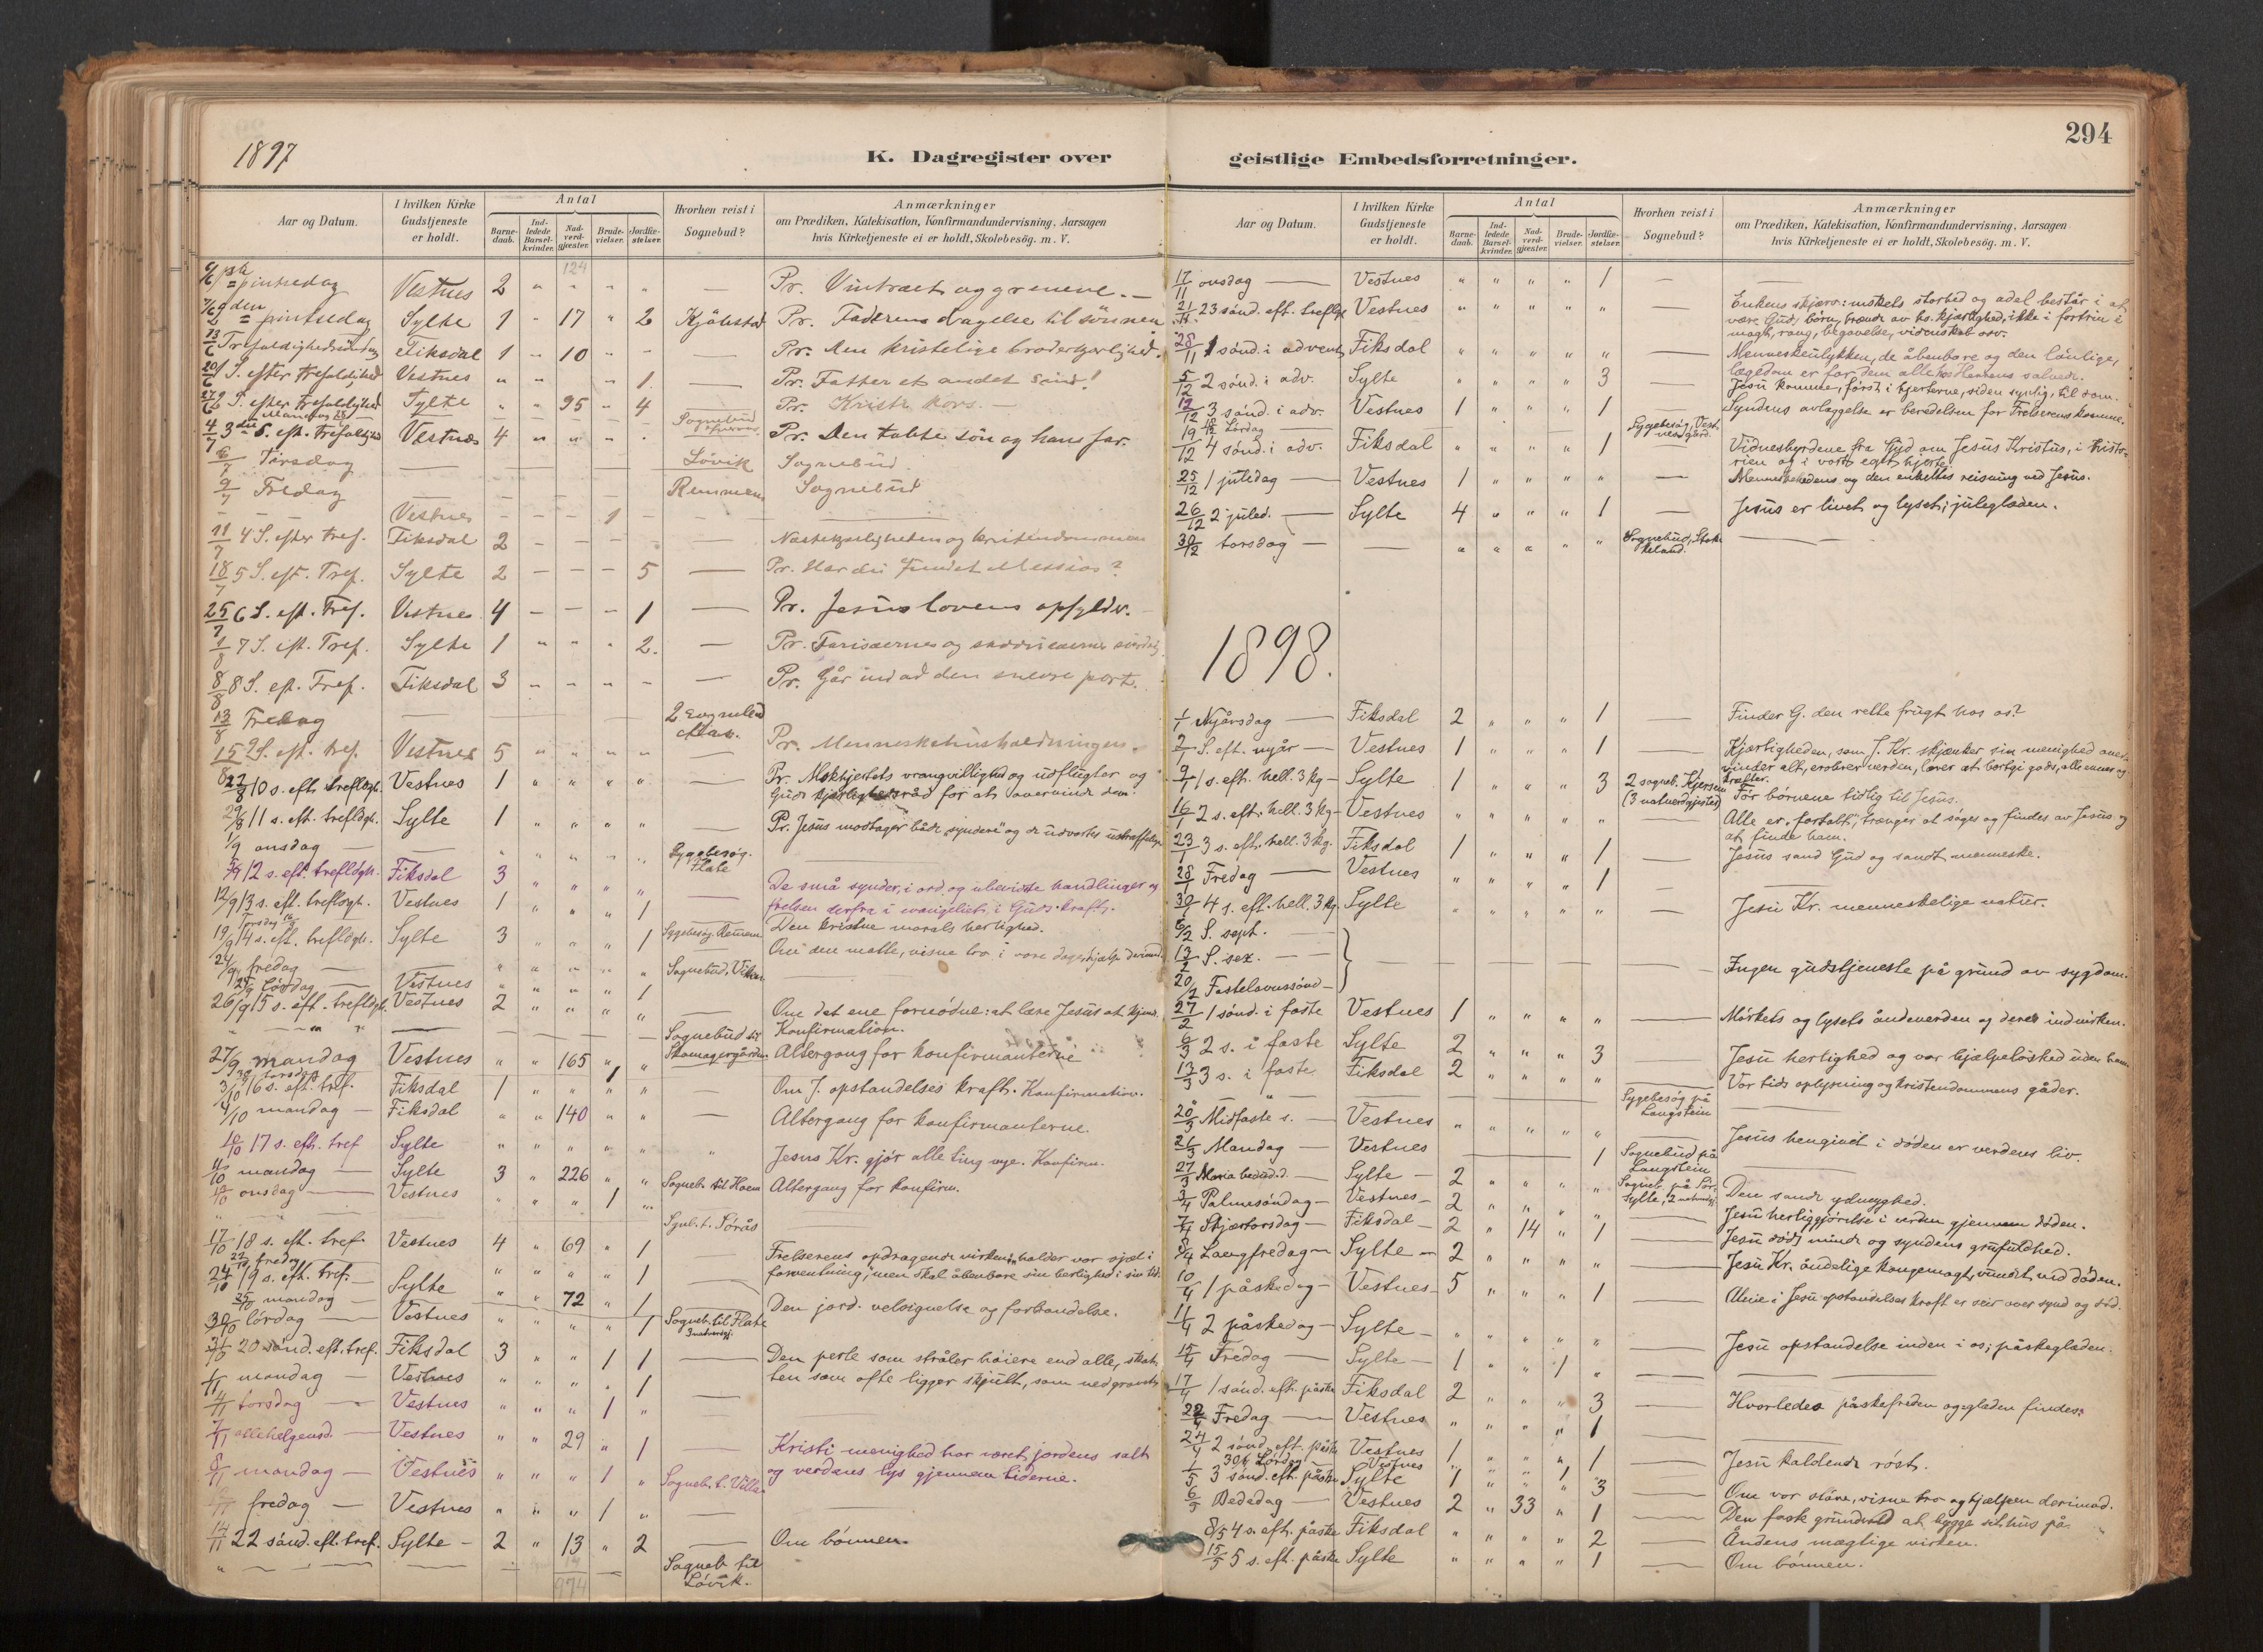 294
1897
K. Dagregister over geistlige Embedsforretninger.
Aar og Datum. | I hvilken Kirke Gudstjeneste er holdt. | Antal | Barne-daab. | Ind-ledede Barsel-kvinder. | Nad-verd-gjester. | Brude-vielser. | Jordfæ-stelser. | Hvorhen reist i Sognebud? | Anmærkninger om Prædiken, Katekisation, Konfirmandundervisning, Aarsagen hvis Kirketjeneste ei er holdt, Skolebesøg. m. V.
124
6/6 pintsedag Vestnes 2 " " " " — Pr. Vintræet og grenene. —
7/6 2den pintsedag Sylte 1 " 17 " 2 Pr. Faderens dragelse til sønnen
13/6 Trefoldighedssöndag Fiksdal 1 " 10 " " — Pr. Den kristelige broderkjerlighed.
20/6 1 S. efter trefoldighed Vestnes " " " 1. — Pr. Fatter et andet sind!
27/6 2 S. efter trefoldighed Sylte " " 95 " 4 Pr. Kristi kors. —
Mandag 28 — Sognebud
4/7 3die S. eft. trefoldighed Vestnes 4 " " " " Pr. Den tabte sön og hans far.
6/7 Tirsdag — Lövik Sognebud.
9/7 Fredag — Remmem Sognebud
Vestnes — — — 1 —
11/7 4 S. efter tref. Fiksdal 2 — — — — Nestekjerligheden og kristendommen
18/7 5 S. eft. Tref. Sylte 2 — — — 5 — Pr. Har du fundet Messias?
25/7 6 S. eft. Tref. Vestnes 4 — — — 1 — Pr. Jesus lovens opfylder. —
1/8 7 S. eft. Tref. Sylte 1 " " " 2. — Pr. Farisæernes og sadducæernes surdeig
8/8 8 S. eft. Tref. Fiksdal 3 " " " " — Pr. Går ind ad den snevre port.
13/8 Fredag — 2 sognebud
15/8 9 S. eft. tref. Vestnes 5 " " " " — Pr. Menneskehusholdningen.
22/8 10 s. eft. trefldgh. Vestnes 1 " " " " — Pr. Mskhjertets vrangvillighed og udflugter og
Guds kjærlighedsråd for at overvinde dem.
29/8 11 s. eft. trefldgh. Sylte 1 " " " " — Pr. Jesus modtager både "syndere" og de udvortes ustraffelige
1/9 onsdag — " " " " " Sygebesøg. Flate
5/9 12 s. eft. trefldgh. Fiksdal 3 " " " " De små synder, i ord og ubevidste handlinger og
12/9 13 s. eft. trefldgh. Vestnes 1 " " " 1 frelsen derfra i evangeliet, i Guds kraft.
Torsdag 16 — Sygebesøg Remmem Den kristne morals herlighed.
19/9 14 s. eft. trefldgh. Sylte 3 " " " 1 — Om den matte, visne tro i vore dage, hjælp derimod.
24/9 fredag — " " " " " Sognebud. Viken
25/9 Lördag — Vestnes " " " " 1
26/9 15 s. eft. trefldgh. Vestnes 2 " " " " — Om det ene fornödne: at lære Jesus at kjende.
Sognebud til Skomagergården Konfirmation.
27/9 mandag Vestnes " " 165 " " — Altergang for konfirmanterne
30/9 torsdag 1
3/10 16 s. eft. tref. Fiksdal 1 " " " " Om J. opstandelses kraft. Konfirmation.
4/10 mandag — Fiksdal " " 140 " " — Altergang for konfirmanterne.
10/10 17 s. eft. tref Sylte " " " " " " Jesus Kr. gjör alle ting nye. Konfirm.
11/10 mandag — Sylte 3 " 226 " " Sogneb. til Haem Altergang for konfirm.
13/10 onsdag — Vestnes " " " 1 "
Sgnb. t. Sörås
17/10 18 s. eft. tref. Vestnes 4 " 69 " 1 — Frelserens opdragende virken: "holder vor sjæl i
22/10 fredag " " " " 1 forventning", men skal åbenbare sin herlighed i sin tid.
24/10 19 s. eft. tref. — Sylte
25/10 mandag — " " 72 " 1 — Den jord. velsignelse og forbandelse.
30/10 lördag — Vestnes " " " " 1 Sogneb. til Flate 3 natverdgj.
31/10 20 sönd. eft. tref. Fiksdal 3 " " 1 1 — Den perle som stråler höiere end alle, skat-
1/11 mandag — Vestnes " " " " 1 — ten som ofte ligger skjult, som nedgravet
4/11 torsdag — Vestnes " " " 1 " —
7/11 allehelgensd. — Vestnes " " 29 " 1 — Kristi menighed har været jordens salt
8/11 mandag — Vestnes " " " 1 " Sogneb. t. Villa og verdens lys gjennem tiderne.
fredag — Vestnes " " " 1 " —
14/11 22 sönd. eft. tref. Sylte — 2 " 13 " 2 — Om bönnen.
Sogneb. til Lövik.
974
Aar og Datum. | I hvilken Kirke Gudstjeneste er holdt. | Antal | Barne-daab. | Ind-ledede Barsel-kvinder. | Nad-verd-gjester. | Brude-vielser. | Jordfæ-stelser. | Hvorhen reist i Sognebud? | Anmærkninger om Prædiken, Katekisation, Konfirmandundervisning, Aarsagen hvis Kirketjeneste ei er holdt, Skolebesøg. m. V.
17/11 onsdag — Vestnes " " " " 1 —
21/11 23 sönd. eft. trefldgh Vestnes " " " " " — Enkens skjærv: mskets storhed og adel består i at
være Gud, börn, brændt av hs. kjærlighed, ikke i fortrin i
magt, rang, begavelse, videnskab osv.
28/11 1 sönd. i advent Fiksdal " " " " " — Menneskeulykken, de åbenbare og den lönlige,
lægedom er for dem alle hos Herrens salvede.
5/12 2 sönd. i adv. Sylte " " " " 3 — Jesu komme, först i hjerterne, siden synlig, til dom.
12/12 3 sönd. i adv. Vestnes 1 " " " 1 — Syndens avlæggelse er beredelsen for Frelserens komme.
18/12 Lördag — Sygebesög, Vestnesgård.
19/12 4 sönd. i adv. Fiksdal " " " " 1 — Vidnesbyrdene fra Gud om Jesus Kristus, i histo-
rien og i vort eget hjerte.
25/12 1 juledag — Vestnes 1 " " " " — Menneskehedens og den enkeltes reisning ved Jesus.
26/12 2 juled. — Sylte 4 " " " 1 — Jesus er livet og lyset; juleglæden.
30/12 torsdag — — " " " " " Sognebud, Stokkeland. —
1898.
1/1 Nyårsdag — Fiksdal 2 " " " 1 — Finder G. den rette frugt hos os?
2/1 S. eft. nyår — Vestnes 1 " " " 1 — Kjærligheden, som J. Kr. skjænker sin menighed over-
vinder alt, erobrer verden, lærer at bortgi gods, alle evner og
kræfter.
9/1 1 s. eft. hell. 3 kg — Sylte 1 " " " 3 2 sogneb. Kjersem (3 natverdgjester) För börnene tidlig til Jesus.
16/1 2 s. eft. hell. 3 kg — Vestnes " " " " " — Alle er "fortabt", trænger at söges og findes av Jesus og
at finde ham.
23/1 3 s. eft. hell. 3 kg. Fiksdal 1 " " " 1 — Jesus sand Gud og sandt menneske.
28/1 Fredag — Vestnes " " " " 1 —
30/1 4 s. eft. hell. 3 kg. Sylte " " " " " — Jesu Kr. menneskelige natur.
6/2 S. sept. —
13/2 S. sex. — — Ingen gudstjeneste på grund av sygdom.
20/2 Fastelavnssönd —
27/2 1 sönd. i faste Vestnes 1 " " " " — Mörkets og lysets åndeverden og deres indvirken.
6/3 2 s. i faste Sylte 2 " " " 3 — Jesu herlighed og vor hjælpelöshed uden ham
13/3 3 s. i faste Fiksdal 2 " " " " — Vor tids oplysning og kristendommens gåder.
Sygebesög på Langstein —
20/3 Midfaste s. — Vestnes " " " " " — Jesus hengivet i döden er verdens liv.
21/3 Mandag — Vestnes 1 Sognebud på Langstein —
27/3 Maria bebud. d. — Sylte — 2 " " " " Sogneb. på Sör-Sylte, 2 natverdgj. Den sande ydmyghed.
3/4 Palmesöndag — Vestnes — 2 " " " " — Jesu herliggjörelse i verden gjennem döden.
7/4 Skjærtorsdag — Fiksdal — 2 " 14 " 1 — Jesu döds minde og syndens grufuldhed.
8/4 Langfredag — Sylte — 2 " " " " — Jesu Kr. åndelige kongemagt, vundet ved döden.
10/4 1 påskedag — Vestnes — 5 " " " 1 — Alene i Jesu opstandelses kraft er seir over synd og död.
11/4 2 påskedag — Sylte — " " " " " — Jesu opstandelse inden i os; påskeglæden.
15/4 Fredag — Sylte — 1 " " 1 " —
17/4 1 sönd. eft. påske Fiksdal 2 " " " 3 — Hvorledes påskefreden og glæden findes.
22/4 Fredag — Vestnes " " " " 1 —
24/4 2 sönd. eft. påske Vestnes 1 " " " 1 — Jesu kaldende röst.
30/4 Lördag — Vestnes " " " 1
1/5 3 sönd. eft. påske Sylte 1 " " " 3 — Om vor slöve, visne tro og hjælpen derimod.
6/5 Bededag — Vestnes 2 " 33 " 1 — Den faste grundvold at bygge sit hus på.
8/5 4 s. eft. påske Fiksdal " " " " 2 — Åndens mægtige virken.
15/5 5 s. eft. påske Sylte " " " " 1 — Om bönnen.